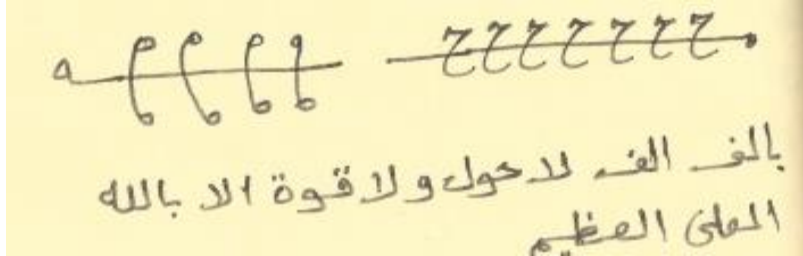 ححححححح
بالف الف لاحول ولا قوة الا بالله
العلى العظيم